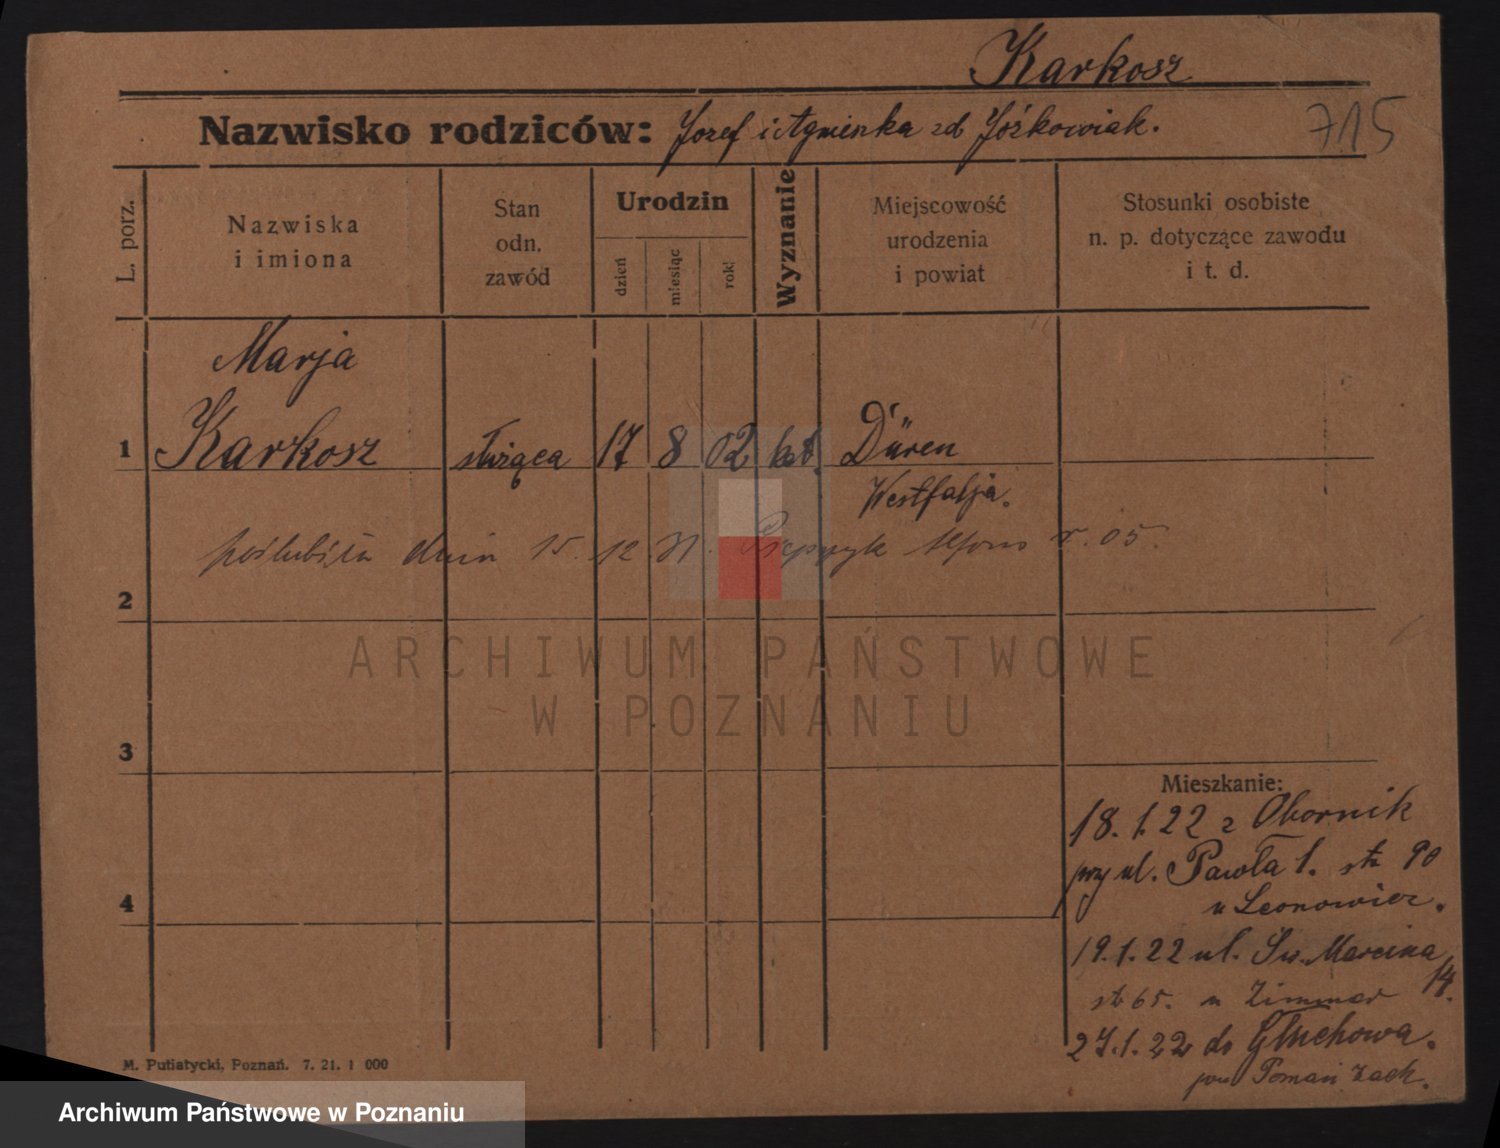 Karkosz
Nazwisko rodziców: Jozef i Agnieszka zd Jóźkowiak.
715
L. porz.
Nazwiska
i imiona
Stan
odn.
zawód
Urodzin
dzień
miesiąc
rok
Wyznanie
Miejscowość
urodzenia
i powiat
Stosunki osobiste
n. p. dotyczące zawodu
i t. d.
Marja
1 Karkosz służąca 17 8 02 kat. Düren
Westfalja.
poślubiła dnia 15. 12 31. Alfons r. 05.
2
3
4
Mieszkanie:
18.1.22 z Obornik
przy ul. Pawła 1. str 90
u Leonowicz.
19.1.22 ul. Św. Marcina
14.
str 65. u Zimmer
27.1.22 do Głuchowa.
pow Poznań zach.
M. Putiatycki, Poznań. 7. 21. 1 000
ARCHIWUM PAŃSTWOWE
W POZNANIU
Archiwum Państwowe w Poznaniu